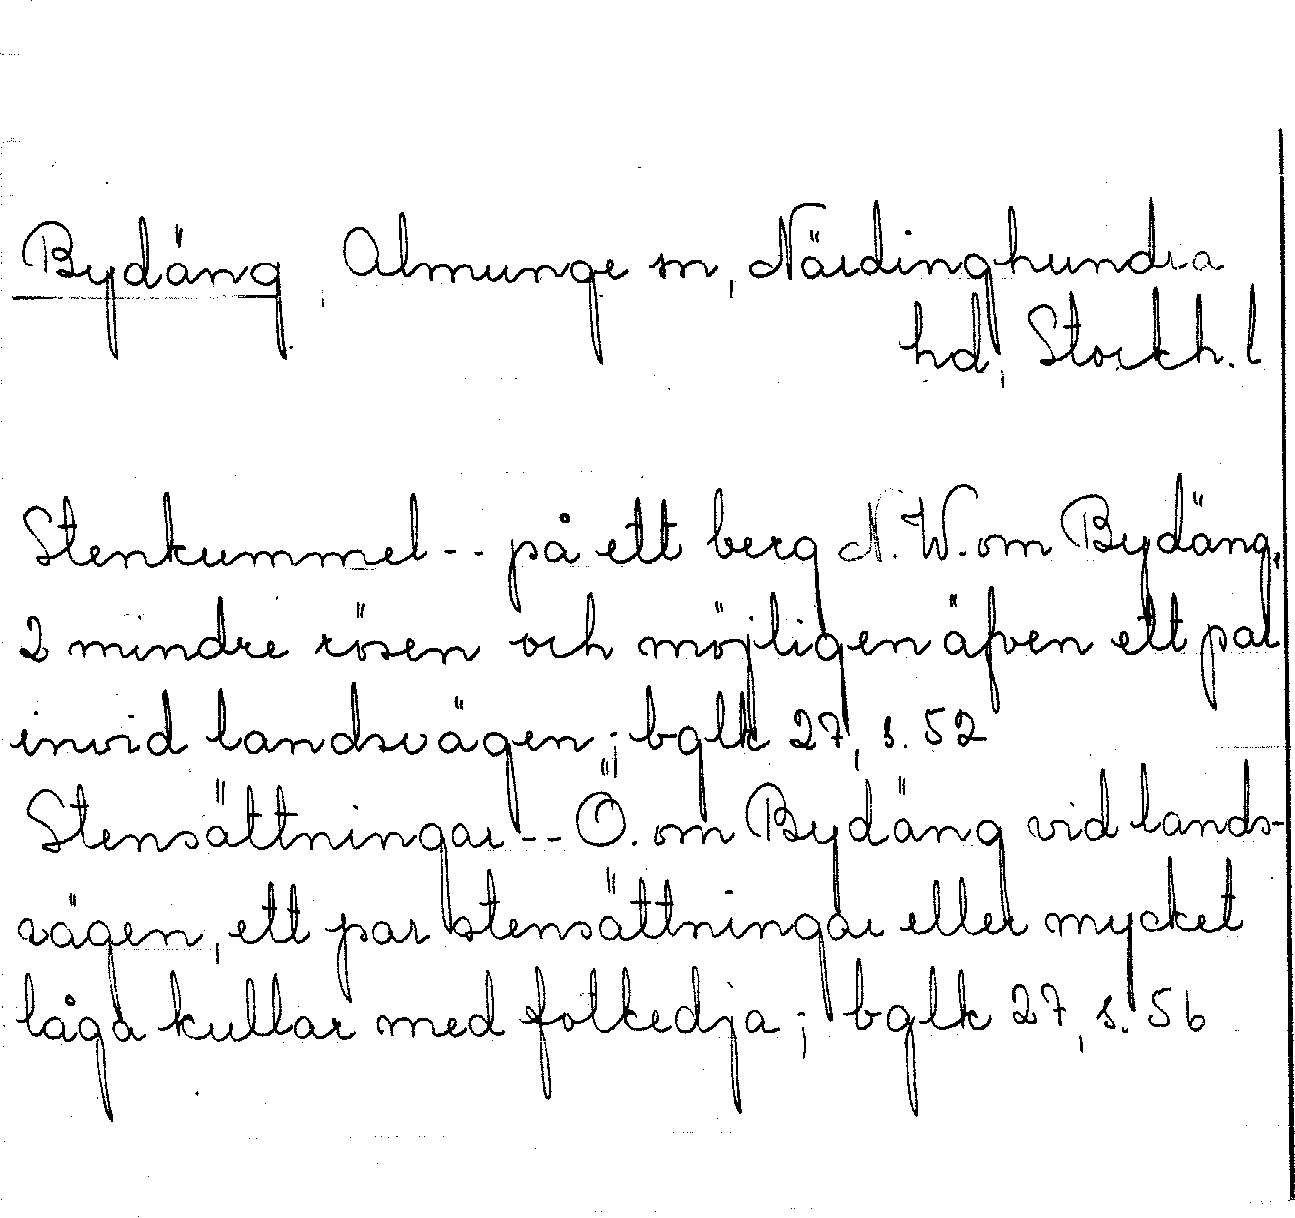 Bydäng, Almunge sn, Närdinghundra
hd, Stockh. l
Stenkummel -- på ett berg N.W. om Bydäng,
2 mindre rösen och möjligen äfven ett par
invid landsvägen; bglk 27, s. 52
Stensättningar -- Ö. om Bydäng vid lands-
vägen, ett par stensättningar eller mycket
låga kullar med fotkedja; bglk 27, s. 56